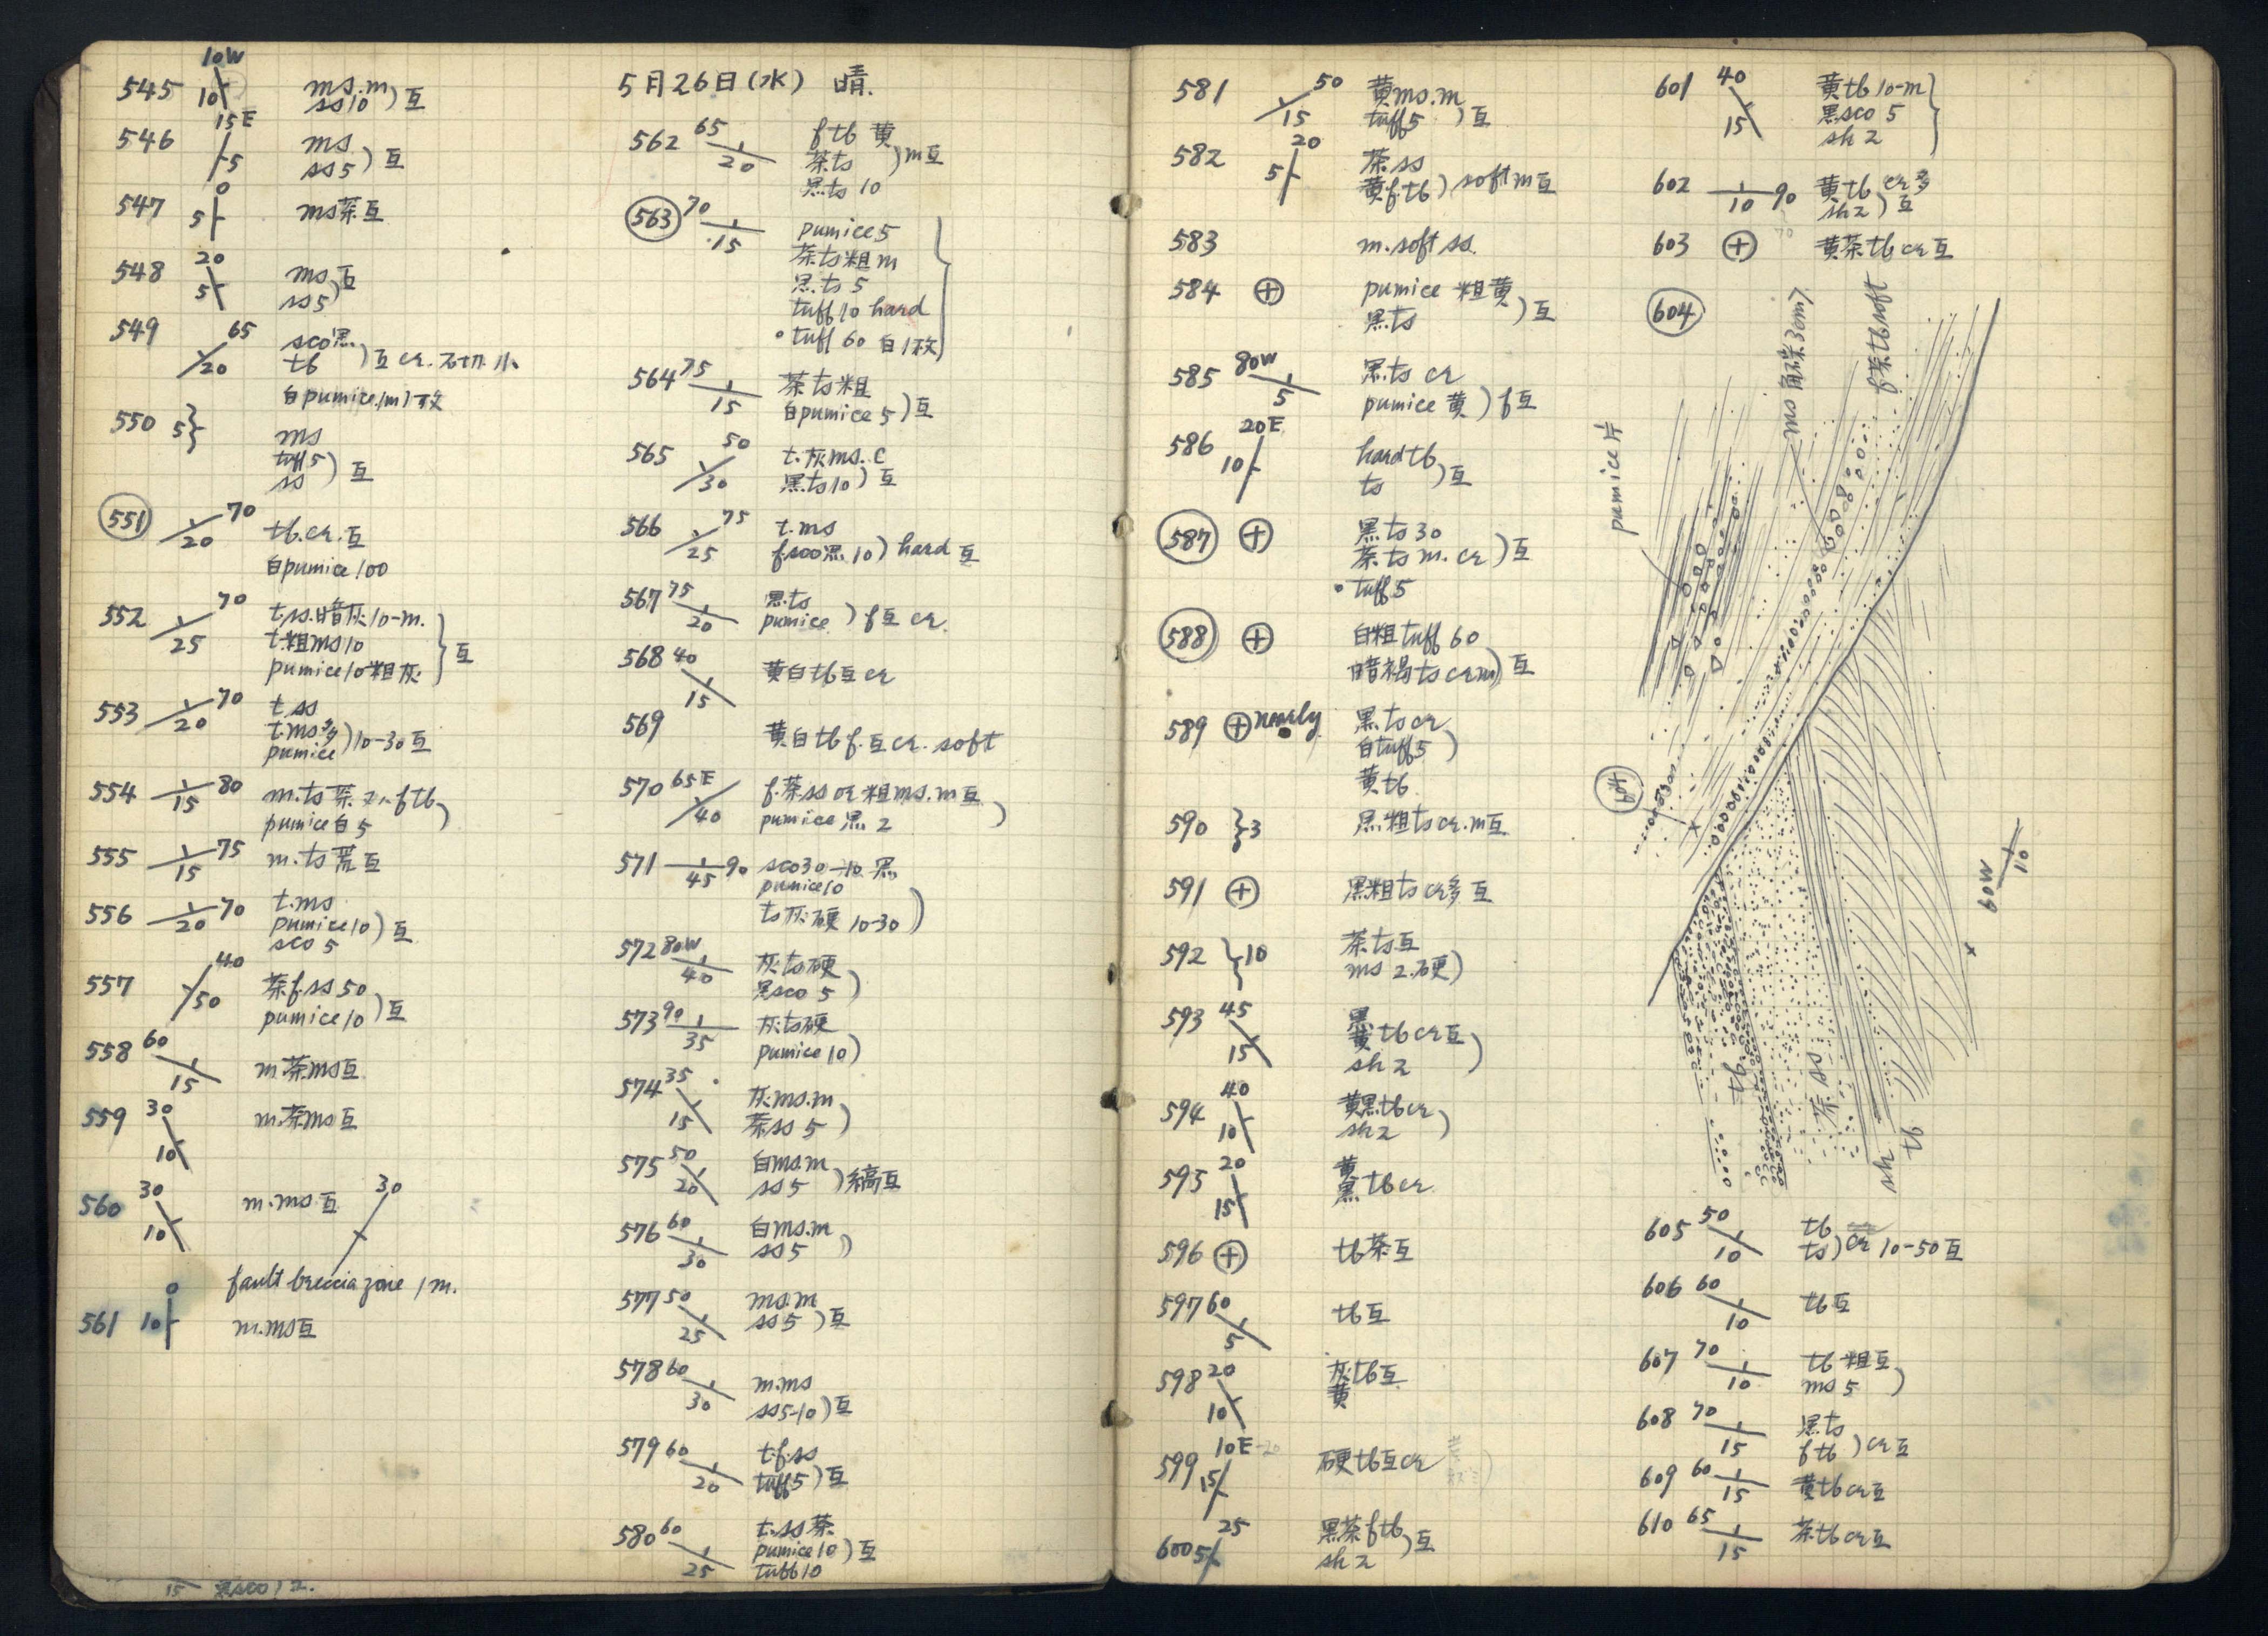 545 10W 10 ms.m
ss10 ) 互
546 15E 5 ms
ss5 ) 互
547 0 5 ms茶互
548 20 5 ms 互
ss5 )
549 65 20 sco黒
tb ) 互 cr.
白pumice 1m1枚
550 5} ms
tuff5
ss ) 互
551 70 20 tb.cr.互
白pumice 100
552 70 25 t.ss.暗灰10-m.
t.粗ms10
pumice10粗灰 } 互
553 70 20 t.ss
t.ms
pumice ) 10-30互
554 80 15 m.ts茶 f tb
pumice白5 )
555 75 15 m.ts 互
556 70 20 t.ms
pumice10 ) 互
sco 5
557 40 50 茶f.ss50
pumice10 ) 互
558 60 15 m.茶ms互
559 30 10 m.茶ms互
560 30 10 m.ms.互 30
fault breccia zone 1m.
561 0 10 m.ms互
5月26日(水) 晴.
562 65 20 f tb 黄
茶ts ) m互
黒ts 10
563 70 15 pumice5
茶ts粗m
黒ts 5
tuff10 hard
tuff 60 白1枚 }
564 75 15 茶ts粗
白pumice 5 ) 互
565 50 30 t.灰ms.c
黒ts10 ) 互
566 75 25 t.ms
f.sco黒10 ) hard 互
567 75 20 黒ts
pumice ) f互 cr.
568 40 15 黄白tb互cr
569 黄白tb f.互cr. soft
570 65E 40 f.茶ss or 粗ms.m互
pumice 黒 2 )
571 90 45 sco30-10黒
pumice10
ts灰硬 10-30 )
572 80W 40 灰ts硬
黒sco 5 )
573 90 35 灰ts硬
pumice 10 )
574 35 15 灰ms.m
茶ss 5 )
575 50 20 白ms.m
ss 5 ) 縞互
576 60 30 白ms.m
ss5 )
577 50 25 ms.m
ss5 ) 互
578 60 30 m.ms
ss5-10 ) 互
579 60 20 t.f.ss
tuff5 ) 互
580 60 25 t.ss茶
pumice10 ) 互
tuff10
581 50 15 黄ms.m
tuff5 ) 互
582 20 5 茶.ss
黄f.tb ) soft m互
583 m.soft ss.
584 ⊕ pumice 粗黄
黒ts ) 互
585 80W 5 黒ts cr
pumice 黄 ) f互
586 20E 10 hard tb
ts ) 互
587 ⊕ 黒ts30
茶ts m.cr ) 互
tuff5
588 ⊕ 白粗tuff 60
暗褐ts cr m ) 互
589 ⊕ nearly 黒ts cr
白tuff5 )
黄tb
590 }3 黒粗ts cr.m互
591 ⊕ 黒粗ts cr多互
592 }10 茶ts互
ms 2.硬 )
593 45 15 黒
黄tb cr互
sh2 )
594 40 10 黄黒tb cr
sh2 )
595 20 15 黄
黒tb cr
596 ⊕ tb茶互
597 60 5 tb互
598 20 10 灰tb互
黄
599 10E 15 硬tb互cr
600 25 5 黒茶f tb
sh2 ) 互
601 40 15 黄tb10-m
黒sco 5
sh 2 }
602 90 10 黄tb cr多
sh2 ) 互
603 ⊕ 黄茶tb cr互
604
pumice片
ms 角礫30cm
f茶tb soft
604
tb
茶 ss
sh
tb
60W 10
605 50 10 tb
ts ) cr 10-50互
606 60 10 tb互
607 70 10 tb粗互
ms 5 )
608 70 15 黒ts
f tb ) cr互
609 60 15 黄tb cr互
610 65 15 茶tb cr互